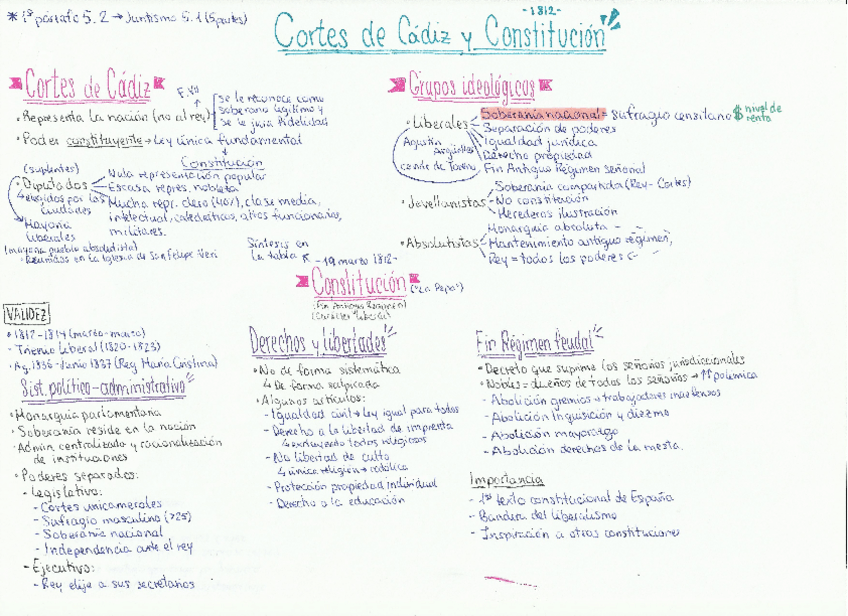 * 1º párrafo 5.2 → Juntismo 5.1 (5 partes)
- 1812 -
Cortes de Cádiz y Constitución
Cortes de Cádiz
F. VII
· Representa la nación (no al rey)
se le reconoce como
soberano legítimo y
se le jura fidelidad
· Poder constituyente → Ley única fundamental
Constitución
(suplentes)
· Diputados
elegidos por las
ciudades
Mayoría
liberales
(mayoría pueblo absolutista)
Nula representación popular
Escasa repres. nobleza
Mucha repr. clero (40%), clase media,
intelectual, catedráticos, altos funcionarios,
militares.
· Reunidos en la Iglesia de San Felipe Neri
Grupos ideológicos
· Liberales
Agustín
Argüelles
conde de Toreno
Soberanía nacional = sufragio censitario $ nivel de
renta
Separación de poderes
Igualdad jurídica
Derecho propiedad
Fin Antiguo Régimen señorial
· Jovellanistas
Soberanía compartida (Rey - Cortes)
No constitución
Herederos ilustración
· Absolutistas
Monarquía absoluta
Mantenimiento antiguo régimen
Rey = todos los poderes
Síntesis en
la tabla
- 19 marzo 1812 -
Constitución ("La Pepa")
(Fin Antiguo Régimen)
(Carácter liberal)
VALIDEZ
· 1812 - 1814 (marzo - marzo)
- Trienio Liberal (1820 - 1823)
- Ag. 1836 - Junio 1837 (Reg. María Cristina)
Sist. político - administrativo
· Monarquía parlamentaria
· Soberanía reside en la nación
· Admin centralizado y racionalización
de instituciones
· Poderes separados:
- Legislativo:
- Cortes unicamerales
- Sufragio masculino (>25)
- Soberanía nacional
- Independencia ante el rey
- Ejecutivo:
- Rey elije a sus secretarios
Derechos y libertades
· No de forma sistemática
↳ De forma salpicada
· Algunos artículos:
- Igualdad civil → ley igual para todos
- Derecho a la libertad de imprenta
↳ excluyendo textos religiosos
- No libertad de culto
↳ única religión → católica
- Protección propiedad individual
- Derecho a la educación
Fin Régimen feudal
· Decreto que suprime los señoríos jurisdiccionales
· Nobles = dueños de todos los señoríos → ↑↑ polémica
- Abolición gremios → trabajadores
- Abolición inquisición y diezmo
- Abolición mayorazgo
- Abolición derechos de la mesta.
Importancia
- 1º texto constitucional de España
- Bandera del liberalismo
- Inspiración a otras constituciones